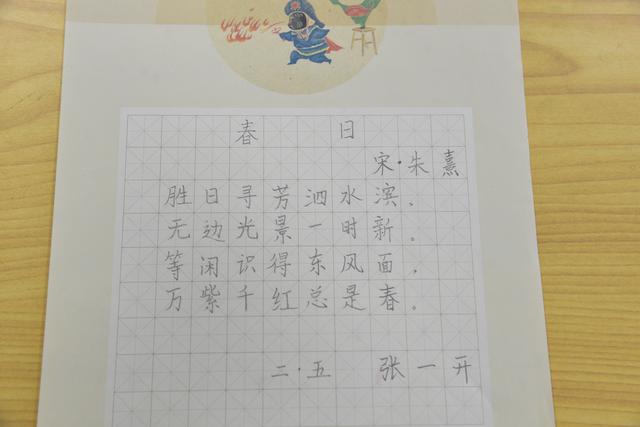 春日
宋·朱熹
胜日寻芳泗水滨，
无边光景一时新。
等闲识得东风面，
万紫千红总是春。
二·五 张一开